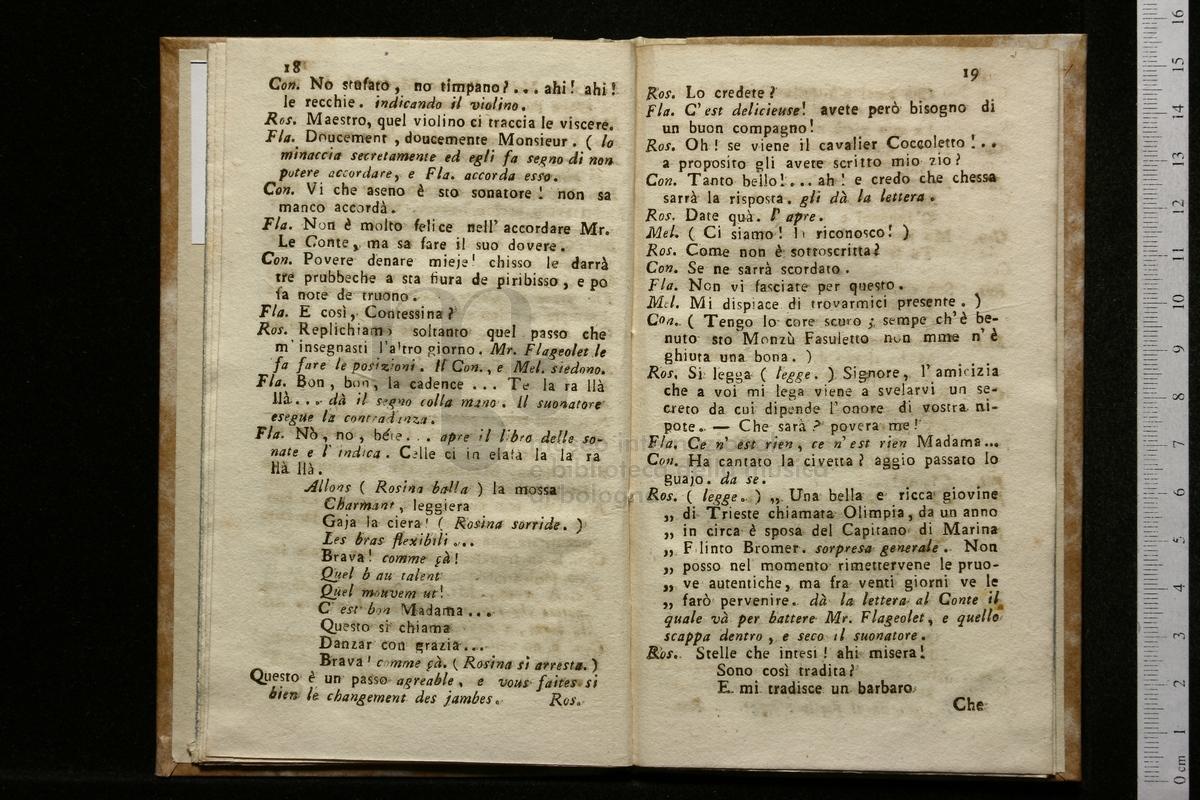 18
Con. No stufato, no timpano?... ahi! ahi!
le recchie. indicando il violino.
Ros. Maestro, quel violino ci traccia le viscere.
Fla. Doucement, doucemente Monsieur. ( lo
minaccia secretamente ed egli fa segno di non
potere accordare, e Fla. accorda esso.
Con. Vi che aseno è sto sonatore! non sa
manco accordà.
Fla. Non è molto felice nell' accordare Mr.
Le Conte, ma sa fare il suo dovere.
Con. Povere denare mieje! chisso le darrà
tre prubbeche a sta fiura de piribisso, e po
fa note de truono.
Fla. E così, Contessina?
Ros. Replichiamo soltanto quel passo che
m' insegnasti l'altro giorno. Mr. Flageolet le
fa fare le posizioni. Il Con., e Mel. siedono.
Fla. Bon, bon, la cadence ... Te la ra llà
llà... dà il segno colla mano. Il suonatore
esegue la contradanza.
Fla. Nò, no, béte... apre il libro delle so-
nate e l' indica. Celle ci in elafà la la ra
llà llà.
Allons ( Rosina balla ) la mossa
Charmant, leggiera
Gaja la ciera! ( Rosina sorride. )
Les bras flexibili ...
Brava! comme çà!
Quel b au talent
Quel mouvem nt!
C' est bon Madama ...
Questo si chiama
Danzar con grazia...
Brava! comme çà. ( Rosina si arresta. )
Questo è un passo agreable, e vous faites si
bien le changement des jambes.
Ros.
19
Ros. Lo credete?
Fla. C' est delicieuse! avete però bisogno di
un buon compagno!
Ros. Oh! se viene il cavalier Coccoletto!..
a proposito gli avete scritto mio zio?
Con. Tanto bello!... ah! e credo che chessa
sarrà la risposta. gli dà la lettera.
Ros. Date quà. l' apre.
Mel. ( Ci siamo! li riconosco! )
Ros. Come non è sottoscritta?
Con. Se ne sarrà scordato.
Fla. Non vi fasciate per questo.
Mel. Mi dispiace di trovarmici presente. )
Con. ( Tengo lo core scuro; sempe ch'è be-
nuto sto Monzù Fasuletto non mme n'è
ghiuta una bona. )
Ros. Si legga ( legge. ) Signore, l' amicizia
che a voi mi lega viene a svelarvi un se-
creto da cui dipende l'onore di vostra ni-
pote. — Che sarà? povera me!
Fla. Ce n' est rien, ce n' est rien Madama...
Con. Ha cantato la civetta? aggio passato lo
guajo. da se.
Ros. ( legge. ) „ Una bella e ricca giovine
„ di Trieste chiamata Olimpia, da un anno
„ in circa è sposa del Capitano di Marina
„ F linto Bromer. sorpresa generale. Non
„ posso nel momento rimettervene le pruo-
„ ve autentiche, ma fra venti giorni ve le
„ farò pervenire. dà la lettera al Conte il
quale và per battere Mr. Flageolet, e quello
scappa dentro, e seco il suonatore.
Ros. Stelle che intesi! ahi misera!
Sono così tradita?
E mi tradisce un barbaro
Che